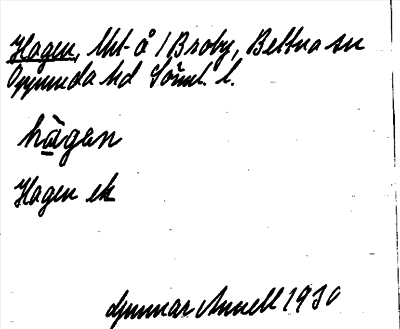 Hagen, Utt å i Broby, Bettna sn
Oppunda hd Söml. l.
hàgen
Hagen ek
Gunnar Annell 1930